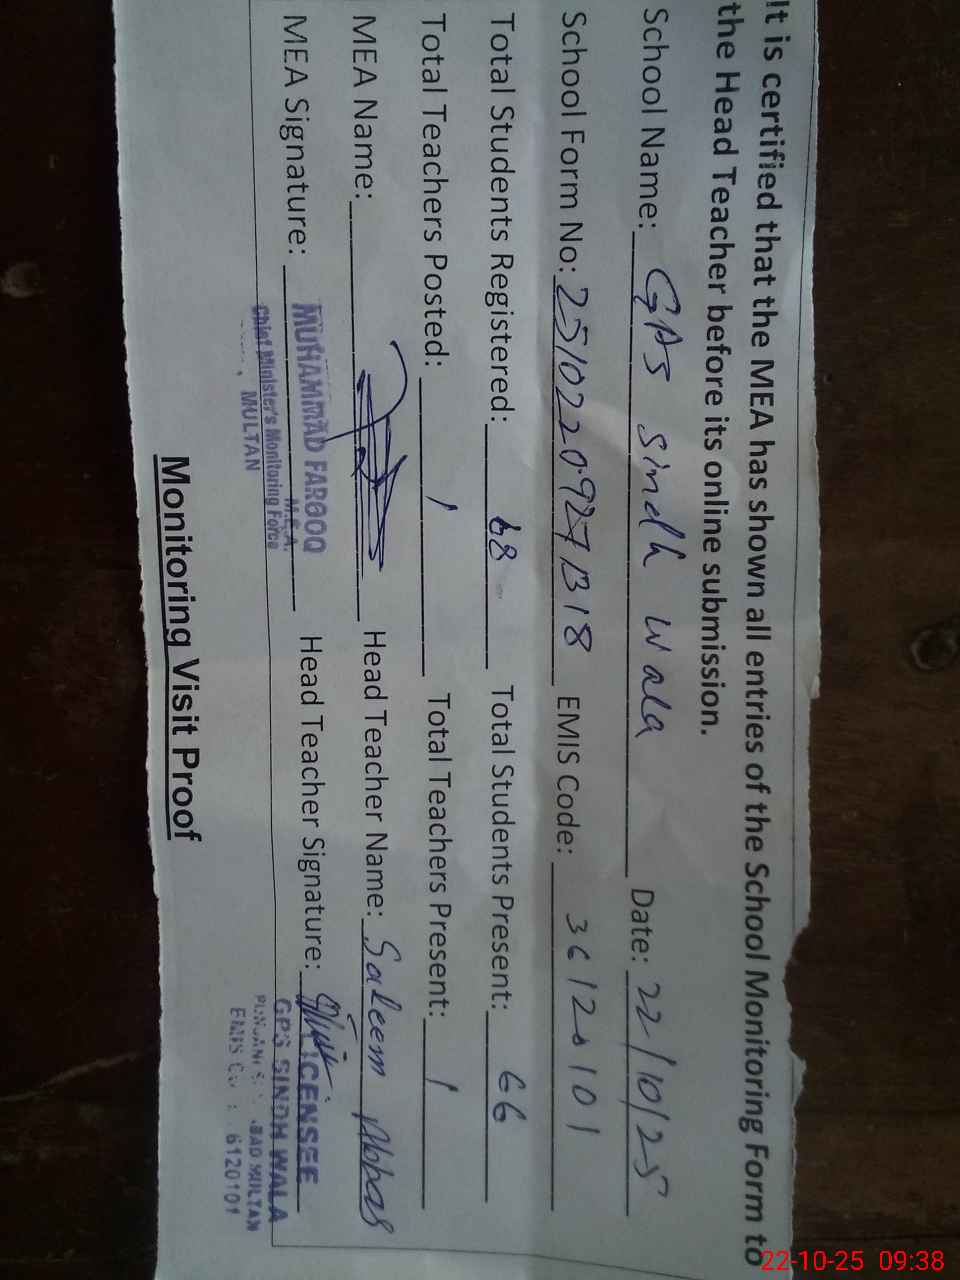 It is certified that the MEA has shown all entries of the School Monitoring Form to
the Head Teacher before its online submission.
School Name: GPS Sindh Wala Date: 22/10/25
School Form No: EMIS Code: 36120101
Total Students Registered: 68 Total Students Present: 66
Total Teachers Posted: 1 Total Teachers Present: 1
MEA Name: Head Teacher Name: Saleem Abbas
MEA Signature: Head Teacher Signature:
MUHAMMAD FAROOQ
M.E.A.
Chief Minister's Monitoring Force
MULTAN
LICENSEE
GPS SINDH WALA
MULTAN
EMIS 6120101
Monitoring Visit Proof
22-10-25 09:38